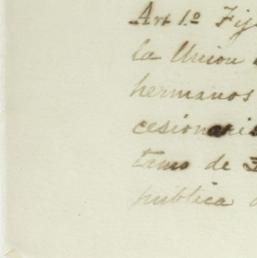 Art 1.º Fij
la Union
hermanos
cesionaris
tamo de
publica